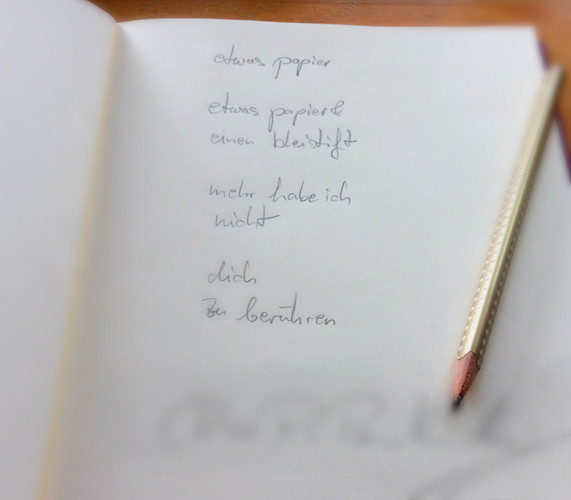 etwas papier
etwas papier &
einen bleistift
mehr habe ich
nicht
dich
zu berühren